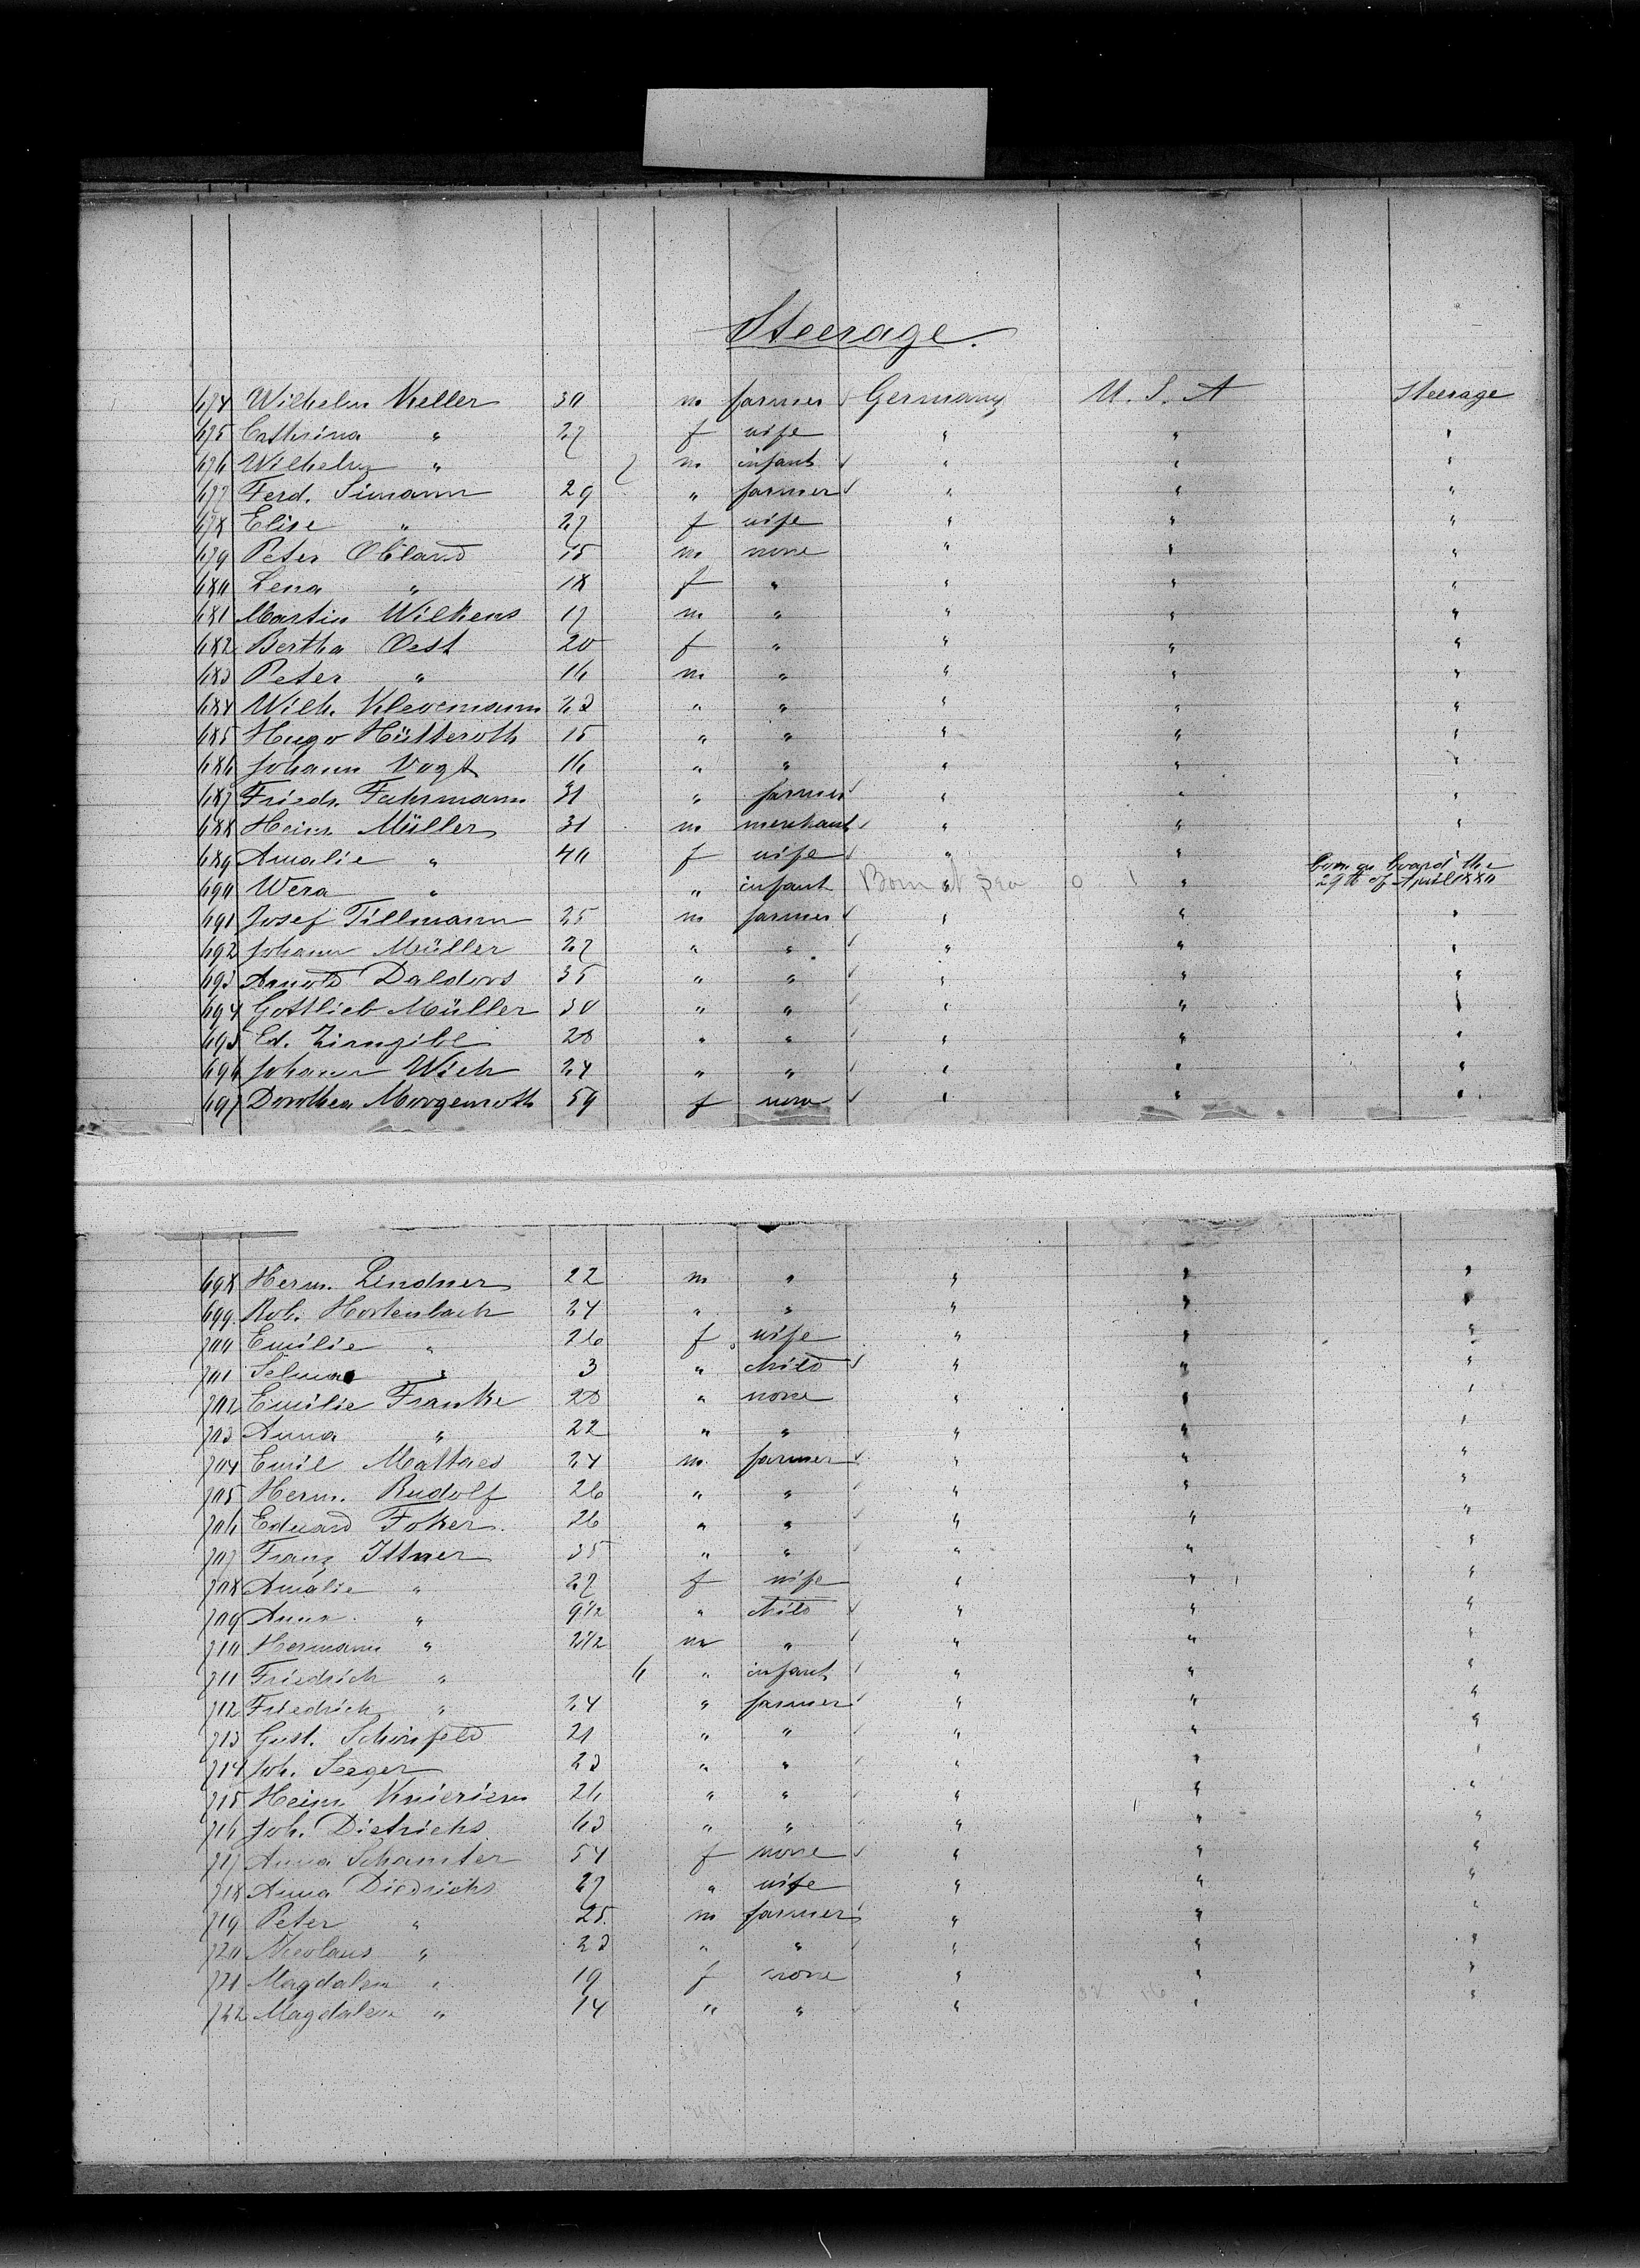 Steerage.
674 Wilhelm Keller 30 m farmer Germany U. S. A Steerage
675 Cathrina " 27 f wife " " "
676 Wilhelm " m infant " " "
677 Ferd. Simann 29 " farmer " " "
678 Elise " 27 f wife " " "
679 Peter Obland 15 m none " " "
680 Lena " 18 f " " " "
681 Martin Wilkens 17 m " " " "
682 Bertha Oest 20 f " " " "
683 Peter " 16 m " " " "
684 Wilh. Klevemann 23 " " " " "
685 Hugo Hütteroth 15 " " " " "
686 Johann Vogt 16 " " " " "
687 Friedr. Fuhrmann 31 " farmer " " "
688 Heinr. Müller 31 m merchant " " "
689 Amalie " 40 f wife " " "
690 Wera " " infant Born at Sea 0 1 " born on board the 29th of April 1880
691 Josef Tillmann 25 m farmer " " "
692 Johann Müller 27 " " " " "
693 Arnold Daldors 35 " " " " "
694 Gottlieb Müller 30 " " " " "
695 Ed. Zirngibl 28 " " " " "
696 Johann Wich 24 " " " " "
697 Dorothea Morgenroth 59 f none " " "
698 Herm. Lindner 22 m " " " "
699. Rob. Hortenbach 24 " " " " "
700 Emilie " 26 f wife " " "
701 Selma " 3 " child " " "
702 Emilie Franke 28 " none " " "
703 Anna " 22 " " " " "
704 Emil Mattaes 24 m farmer " " "
705 Herm. Rudolf 26 " " " " "
706 Eduard Foker. 26 " " " " "
707 Franz Ittner 35 " " " " "
708 Amalie " 27 f wife " " "
709 Anna " 9 1/2 " child " " "
710 Hermann " 2 1/2 m " " " "
711 Friedrich " 6 " infant " " "
712 Friedrich " 24 " farmer " " "
713 Gust. Schönfeld 21 " " " " "
714 Joh. Seeger 23 " " " " "
715 Heinr. Knieriem 26 " " " " "
716 Joh. Dietrichs 63 " " " " "
717 Anna Schamter 54 f none " " "
718 Anna Diedrichs 27 " wife " " "
719 Peter " 25. m farmer " " "
720 Nicolaus " 23 " " " " "
721 Magdalen " 19 f none " " "
722 Magdalen " 14 " " " " "